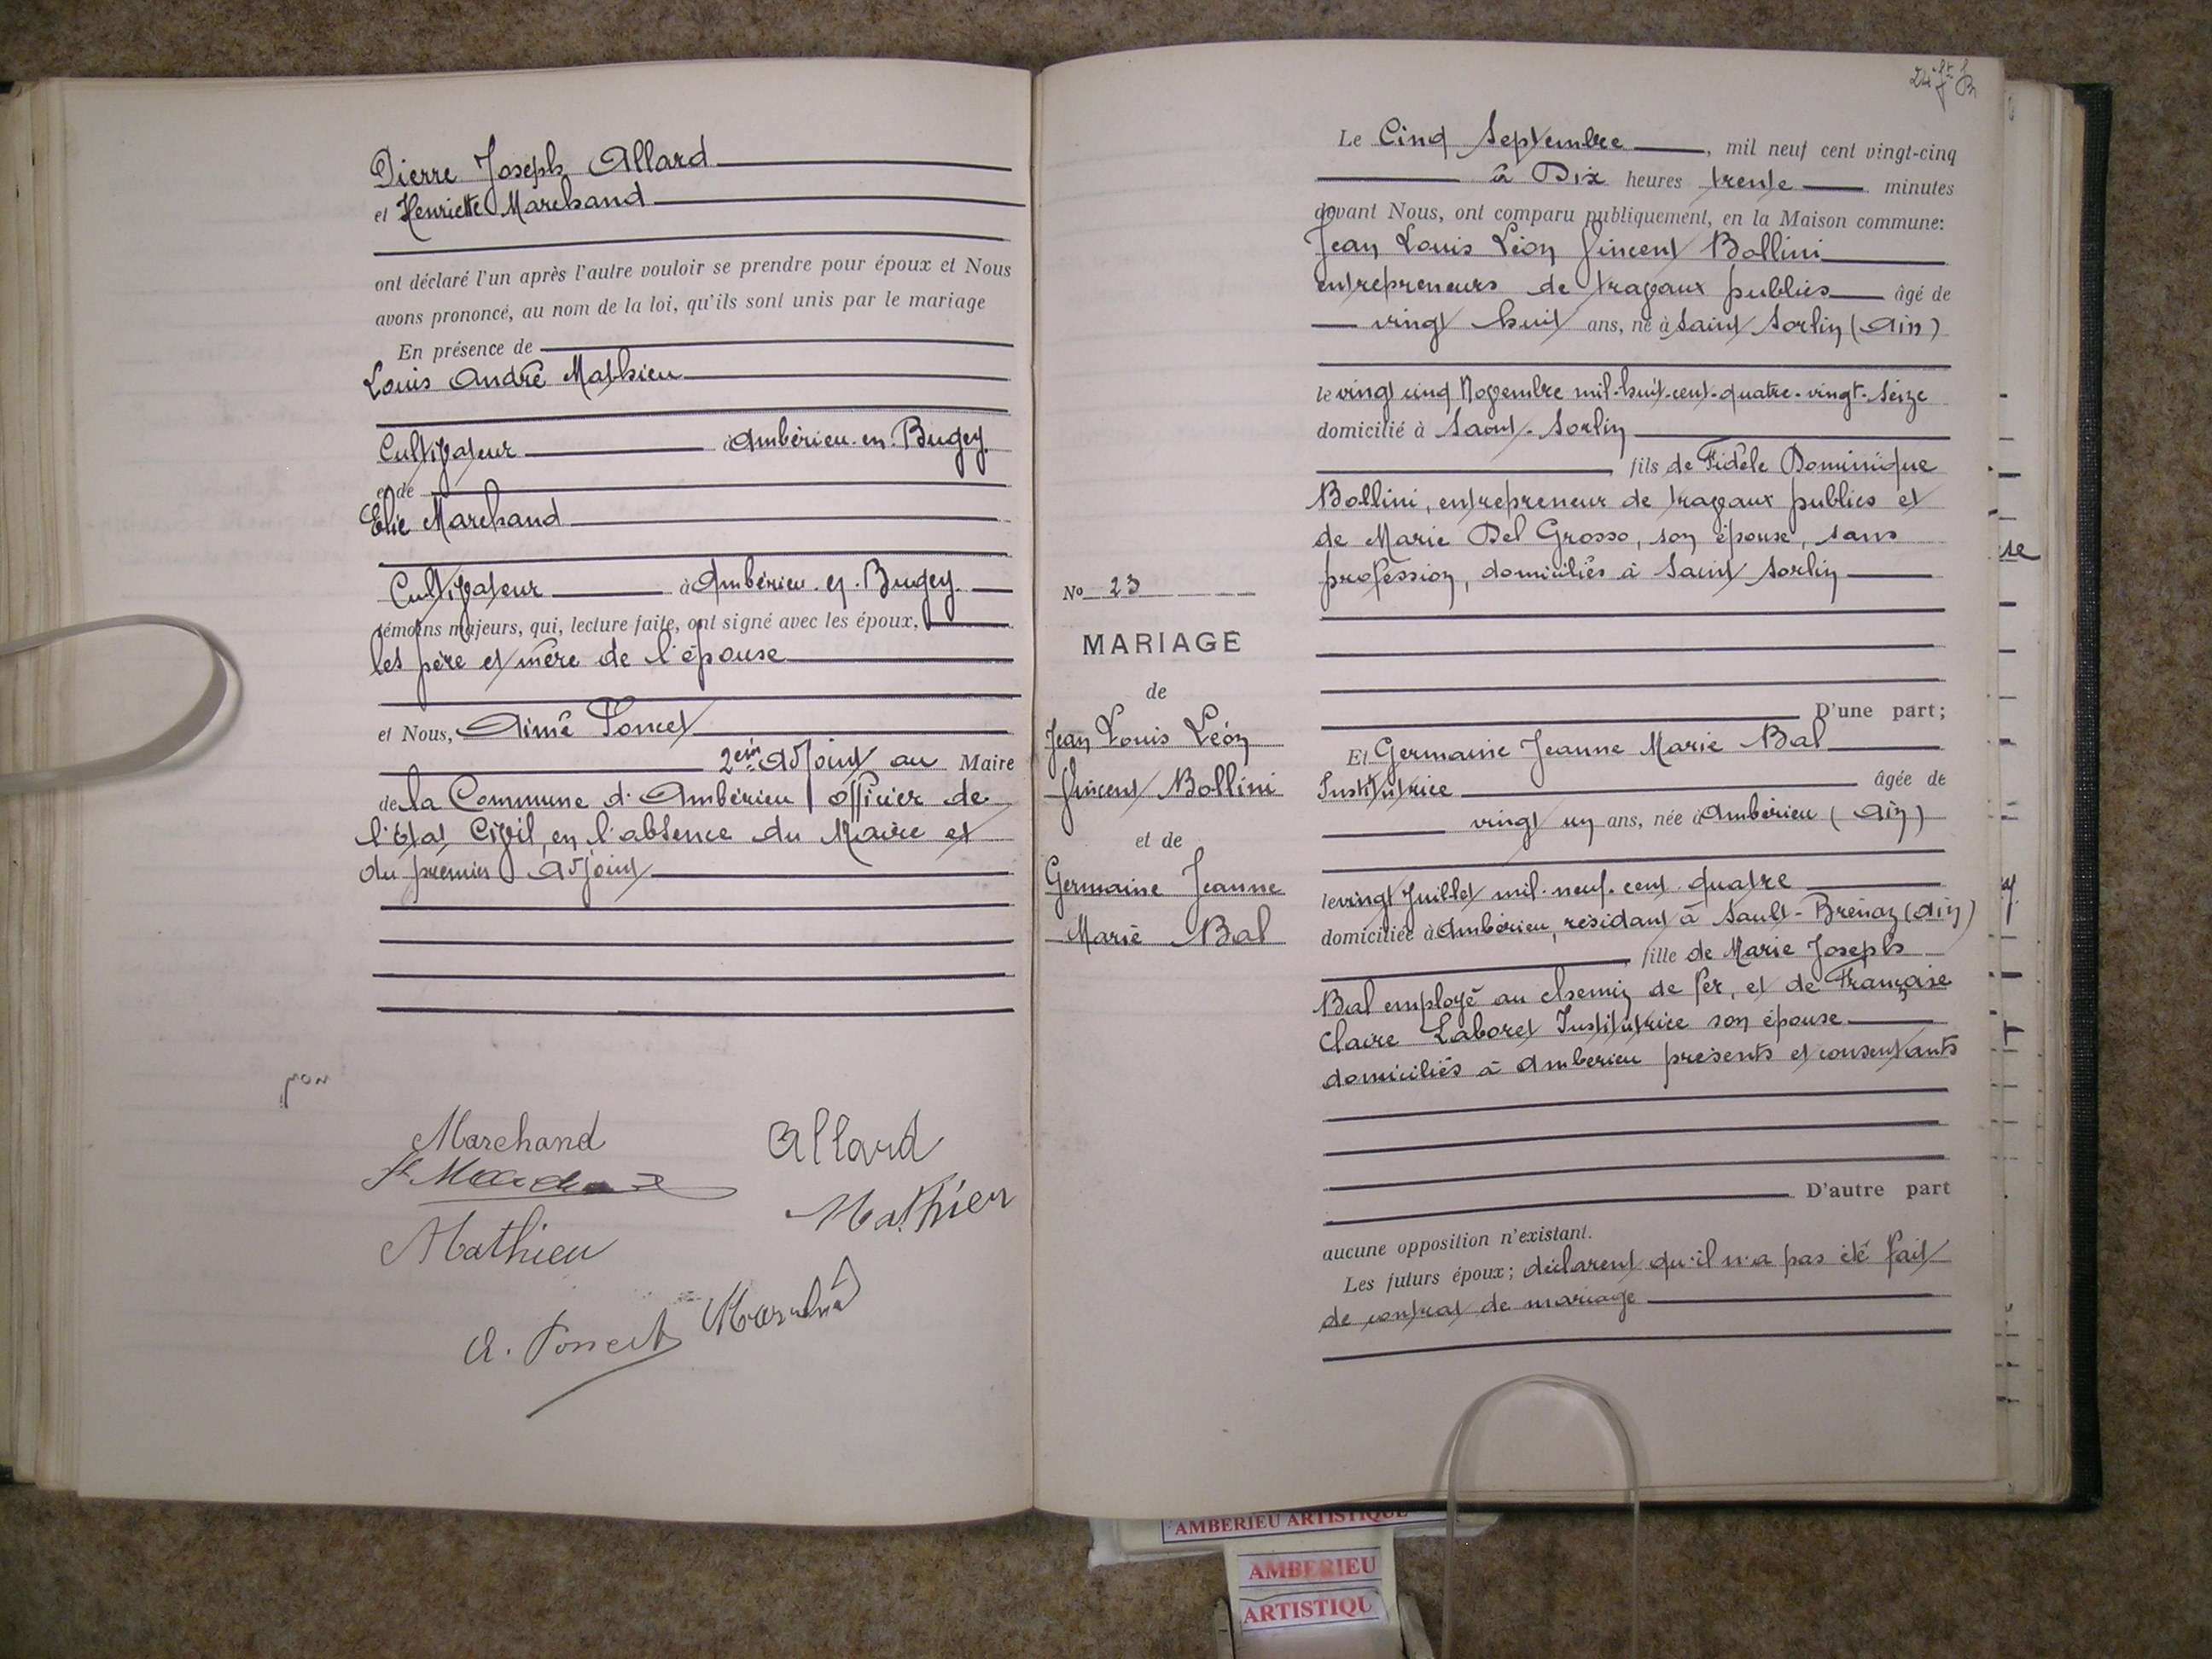 Pierre Joseph Allard
et Henriette Marchand
ont déclaré l'un après l'autre vouloir se prendre pour époux et Nous
avons prononcé, au nom de la loi, qu'ils sont unis par le mariage
En présence de
Louis André Mathieu
Cultivateur à Ambérieu-en-Bugey
et de
Elie Marchand
Cultivateur à Ambérieu-en-Bugey
témoins majeurs, qui, lecture faite, ont signé avec les époux,
les père et mère de l'épouse
et Nous, Aimé Poncet
2em Adjoint au Maire
de la Commune d'Ambérieu officier de
l'Etat Civil, en l'absence du Maire et
du premier Adjoint
Marchand Allard
Mathieu
Mathieu
A. Poncet
Le Cinq Septembre, mil neuf cent vingt-cinq
à Dix heures trente minutes
devant Nous, ont comparu publiquement, en la Maison commune:
Jean Louis Léon Vincent Bollini
entrepreneurs de travaux publics âgé de
vingt huit ans, né à Saint Sorlin (Ain)
le vingt cinq Novembre mil-huit-cent-quatre-vingt-seize
domicilié à Saint-Sorlin
fils de Fidèle Dominique
Bollini, entrepreneur de travaux publics et
de Marie Del Grosso, son épouse, sans
profession, domiciliés à Saint Sorlin
D'une part;
No 23
MARIAGE
de
Jean Louis Léon
Vincent Bollini
et de
Germaine Jeanne
Marie Bal
Et Germaine Jeanne Marie Bal
Institutrice âgée de
vingt un ans, née à Ambérieu (Ain)
le vingt Juillet mil-neuf-cent-quatre
domiciliée à Ambérieu, résidant à Sault-Brénaz (Ain)
fille de Marie Joseph
Bal employé au chemin de fer, et de Françoise
Claire Laboret Institutrice son épouse
domiciliés à Amberieu présents et consentants
D'autre part
aucune opposition n'existant.
Les futurs époux; déclarent qu'il n'a pas été fait
de contrat de mariage
AMBERIEU ARTISTIQUE
AMBERIEU
ARTISTIQU